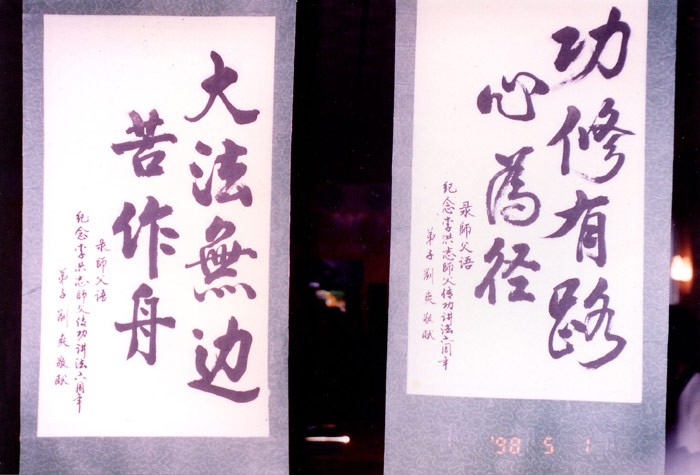 功修有路
心為径
录師父语
纪念李洪志師父传功讲法六周年
弟子刘爽敬献
大法無边
苦作舟
录師父语
纪念李洪志師父传功讲法六周年
弟子刘爽敬献
'98 5 1